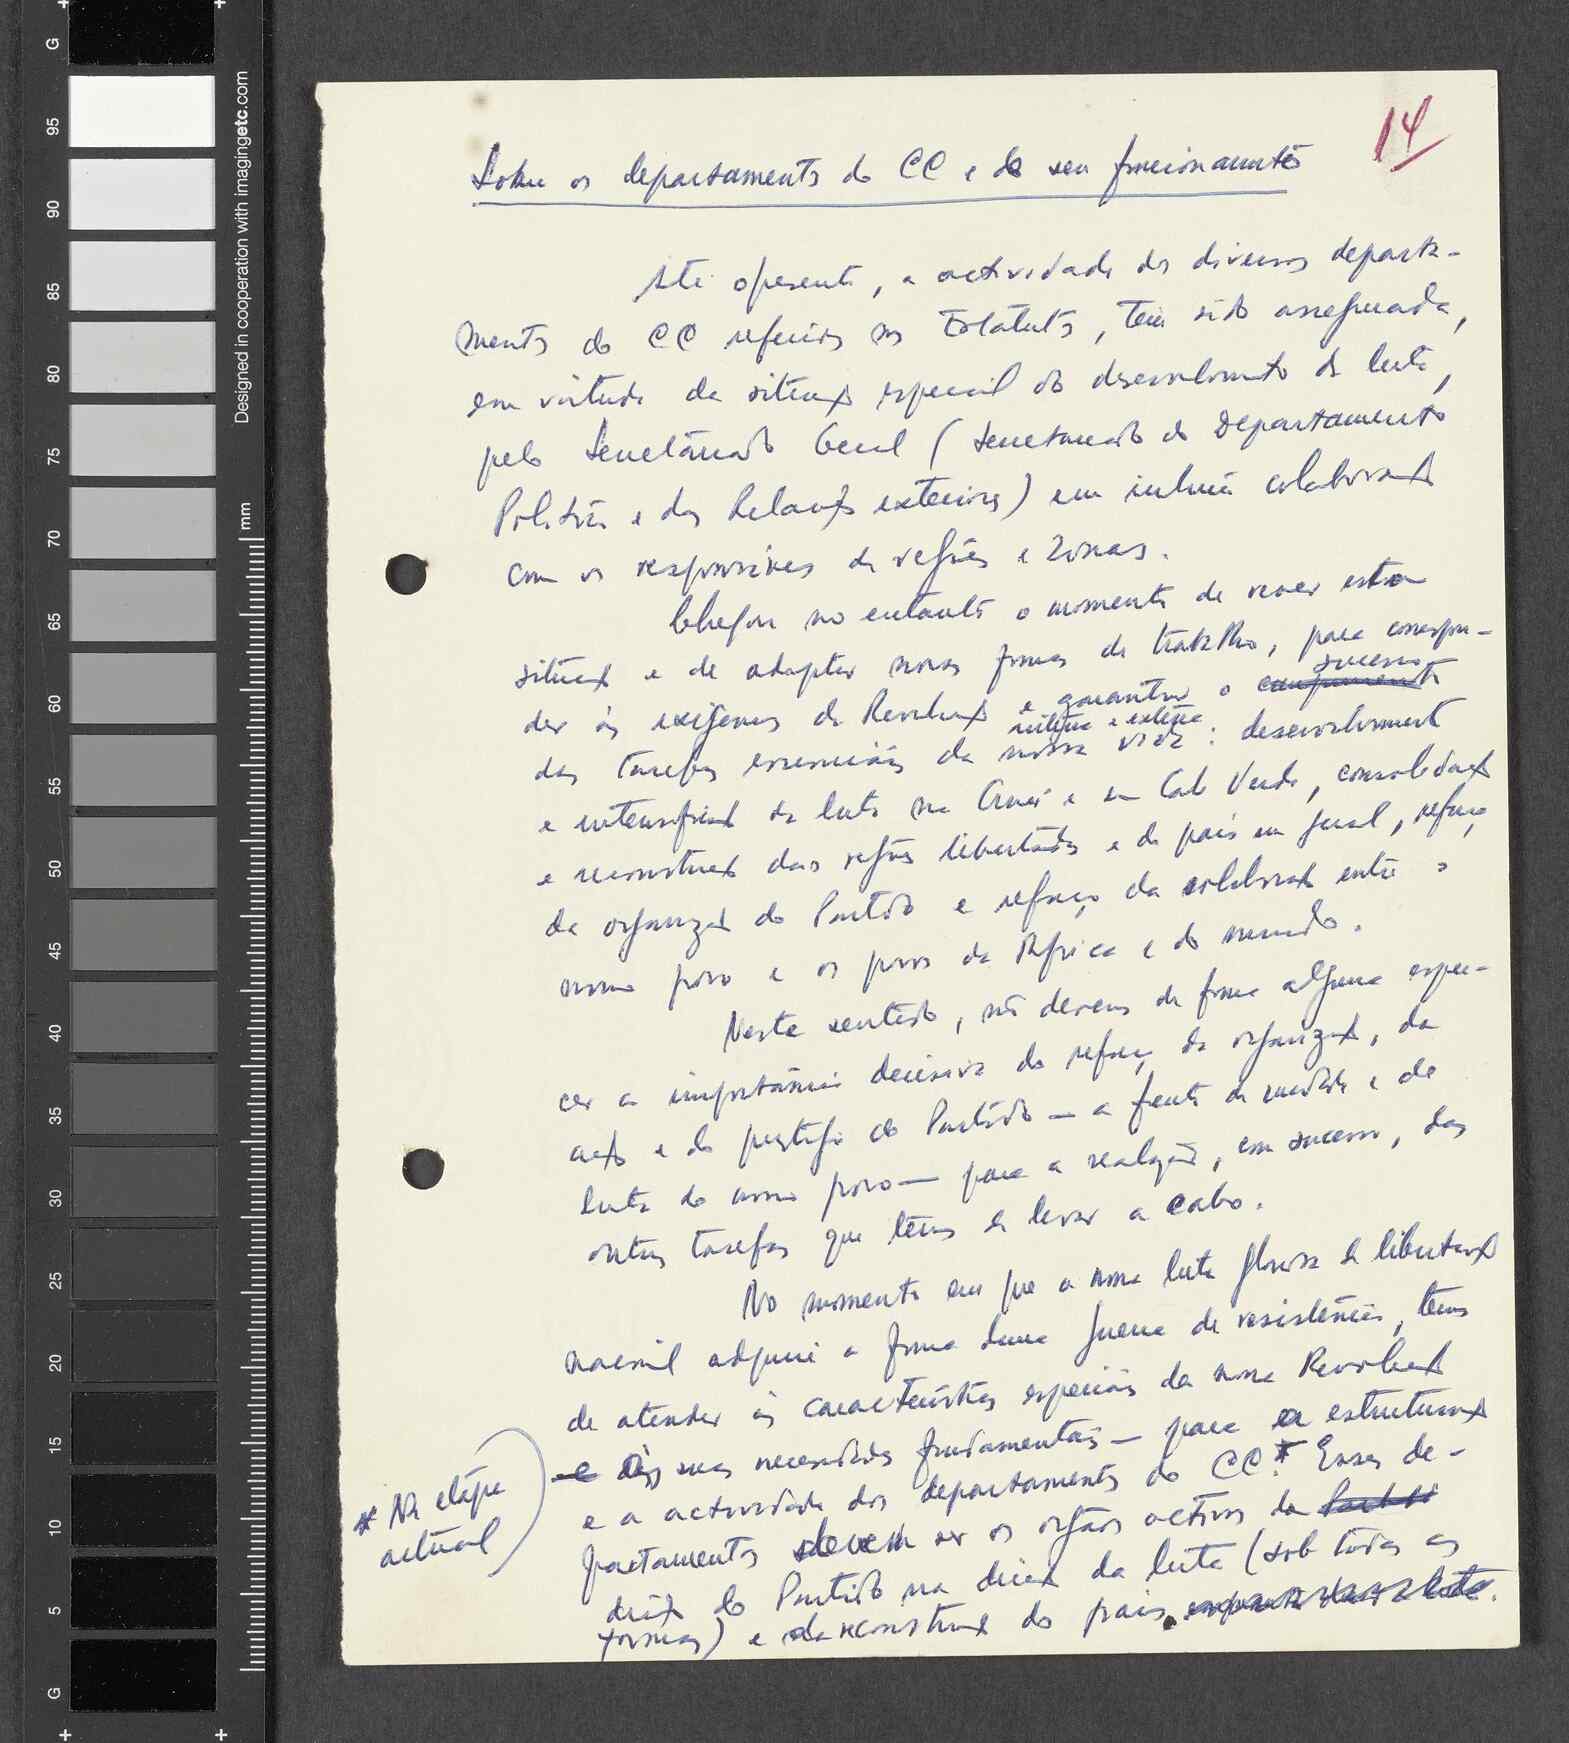 14
Sobre os departamentos do CC e do seu funcionamento
Até o presente, a actividade dos diversos departa-
mentos do CC referidos nos Estatutos, tem sido assegurada,
em virtude da situação especial do desenvolvimento da luta,
pelo Secretariado Geral (Secretariado do Departamento
Político e das Relações exteriores) em íntima colaboração
com os responsáveis de regiões e zonas.
Chegou no entanto o momento de rever esta
situação e de adoptar novas formas de trabalho, para correspon-
sucesso
der às exigências da Revolução e garantir o cumprimento
interna e externa
das tarefas essenciais da nossa vida: desenvolvimento
e intensificação da luta na Guiné e em Cabo Verde, consolidação
e reconstrução das regiões libertadas e do país em geral, reforço
da organização do Partido e reforço da colaboração entre o
nosso povo e os povos da África e do mundo.
Neste sentido, não devemos de forma alguma esque-
cer a importância decisiva do reforço da organização, da
acção e do prestígio do Partido — a frente da unidade e de
luta do nosso povo — para a realização, com sucesso, das
outras tarefas que temos de levar a cabo.
No momento em que a nossa luta gloriosa de libertação
nacional adquire a forma duma guerra de resistência, temos
de atender às características especiais da nossa Revolução
— e às suas necessidades fundamentais — para a estruturação
e a actividade dos departamentos do CC.* Esses de-
* Na etapa
actual
partamentos devem ser os orgãos activos da
direcção do Partido na direcção da luta (sob todas as
formas) e da reconstrução do país.